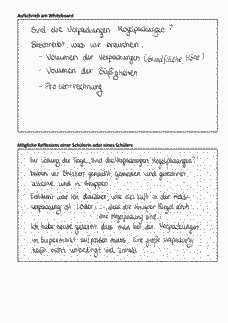 Aufschrieb am Whiteboard
Sind die Verpackungen Mogelpackungen?
Beschreibt, was wir brauchen.
- Volumen der Verpackungen (Grundfläche · Höhe)
- Volumen der Süßigkeiten
- Prozentrechnung
Mögliche Reflexionen einer Schülerin oder eines Schülers
Zur Lösung der Frage, sind die Verpackungen Mogelpackungen?
haben wir Skizzen gemacht, gemessen und gerechnet
alleine und in Gruppen.
Erstaunt war ich darüber, wie viel Luft in der
verpackung ist (oder: , dass die
eine Mogelpackung sind.)
Ich habe heute gelernt, dass man bei den Verpackungen
im Supermarkt aufpassen muss. Eine große Verpackung
heißt nicht unbedingt viel Inhalt.